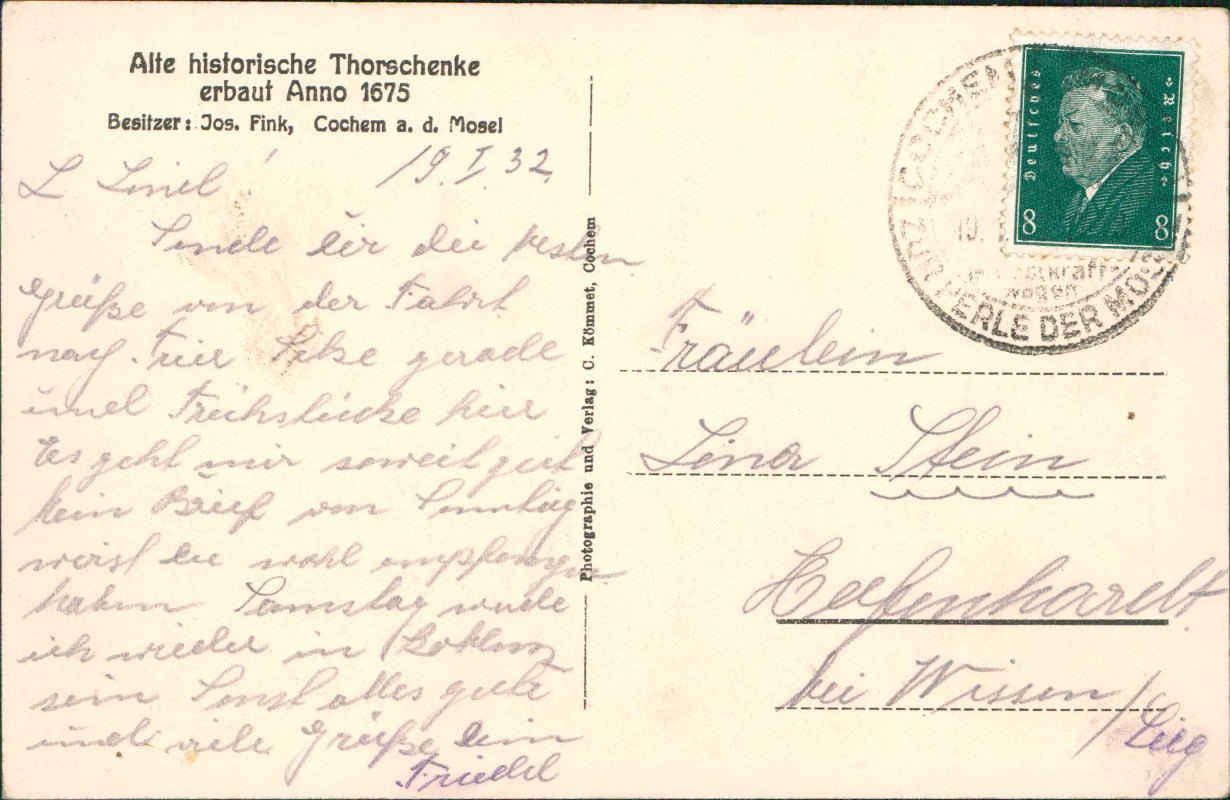 Alte historische Thorschenke
erbaut Anno 1675
Besitzer: Jos. Fink, Cochem a. d. Mosel
19.I.32.
L Linel!
Sende dir die besten
Grüße von der Fahrt
nach Trier Sitze gerade
und Frühstücke hier
Es geht mir soweit gut
kein Brief von Sonntag
wirst du wohl empfangen
haben Samstag werde
ich wieder in Koblenz
sein Sonst alles gute
und viele Grüße dein
Friedel
Photographie und Verlag: C. Kömmet, Cochem
Deutsches Reich
8 8
COCHEM
ZUR PERLE DER MOSEL
Fräulein
Lina Stein
bei Wissen / Sieg